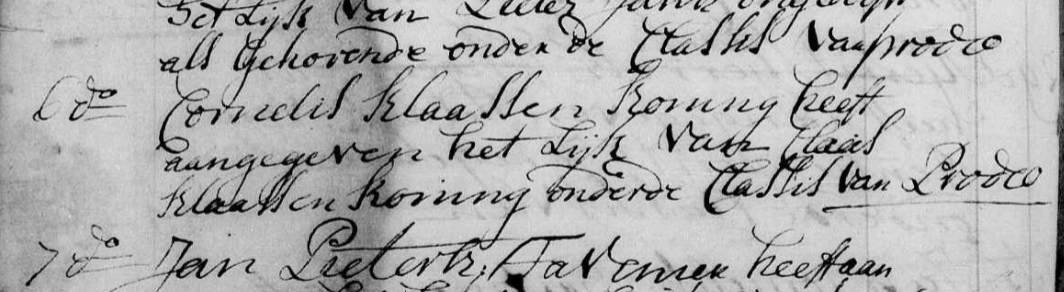 het Lijk van Pieter Jansz
als Gehorende onder de Classis van prodeo
6 do Cornelis Klaassen Koning heeft
aangegeven het Lijk van Claas
Klaassen Koning onder de Classis van Prodeo
7 do Jan Pietersz. heeft aan